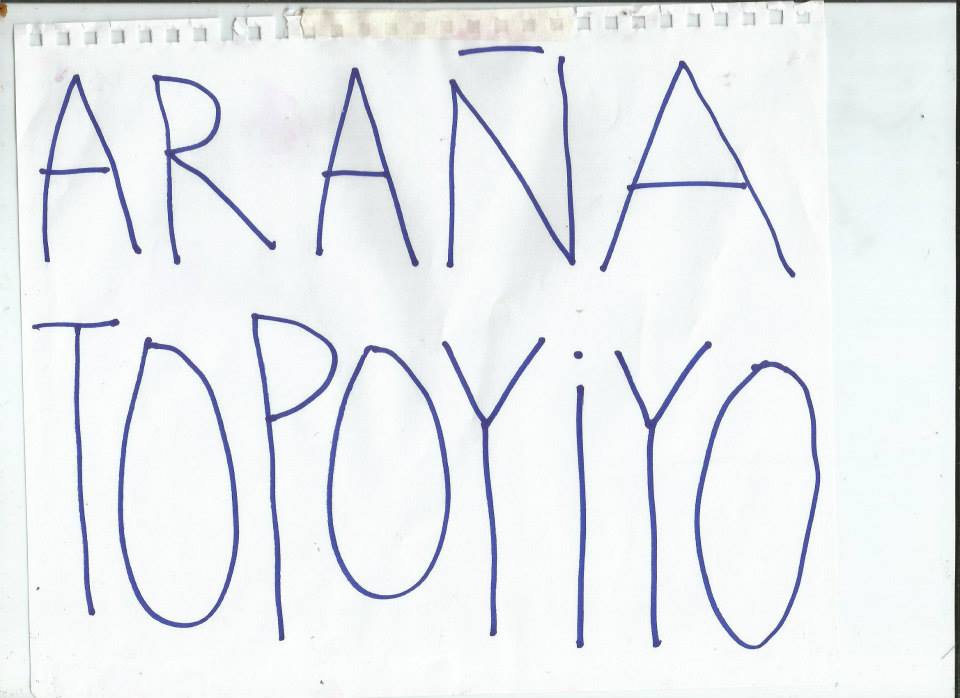 ARAÑA
TOPOYiYO